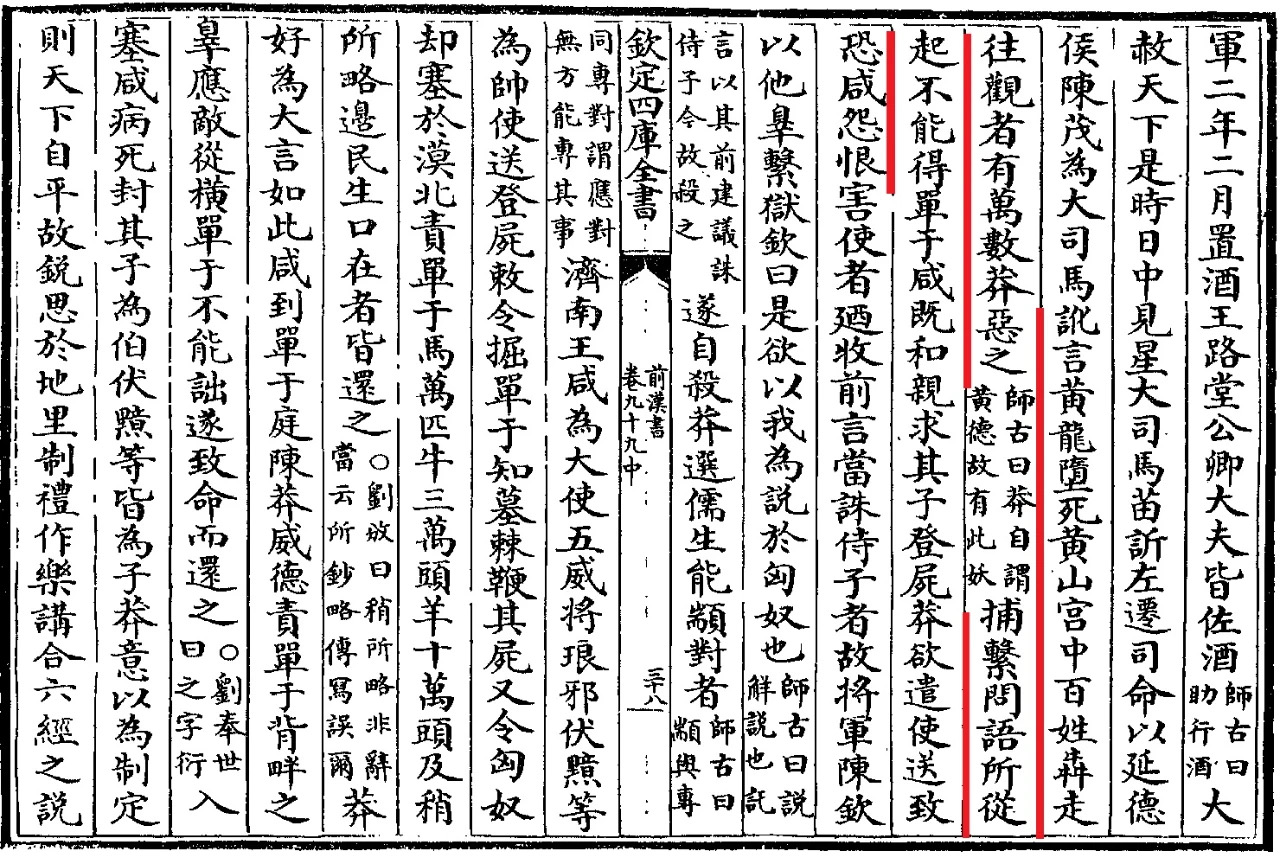 軍二年二月置酒王路堂公卿大夫皆佐酒師古曰助行酒大
赦天下是時日中見星大司馬苗訢左遷司命以延德
侯陳茂為大司馬訛言黃龍墮死黃山宮中百姓犇走
往觀者有萬數莽惡之師古曰莽自謂黃德故有此妖捕繫問語所從
起不能得單于咸既和親求其子登屍莽欲遣使送致
恐咸怨恨害使者廼收前言當誅侍子者故將軍陳欽
以他辠繫獄欽曰是欲以我為説於匈奴也師古曰説解説也託
言以其前建議誅侍子今故殺之遂自殺莽選儒生能顓對者師古曰顓與專
欽定四庫全書
前漢書
卷九十九中
三十八
同專對謂應對無方能專其事濟南王咸為大使五威將琅邪伏黯等
為帥使送登屍敕令掘單于知墓棘鞭其屍又令匈奴
却塞於漠北責單于馬萬匹牛三萬頭羊十萬頭及稍
所略邊民生口在者皆還之○劉攽曰稍所略非辭當云所鈔略傳冩誤爾莽
好為大言如此咸到單于庭陳莽威德責單于背畔之
辠應敵從横單于不能詘遂致命而還之○劉奉世曰之字衍入
塞咸病死封其子為伯伏黯等皆為子莽意以為制定
則天下自平故鋭思於地里制禮作樂講合六經之説